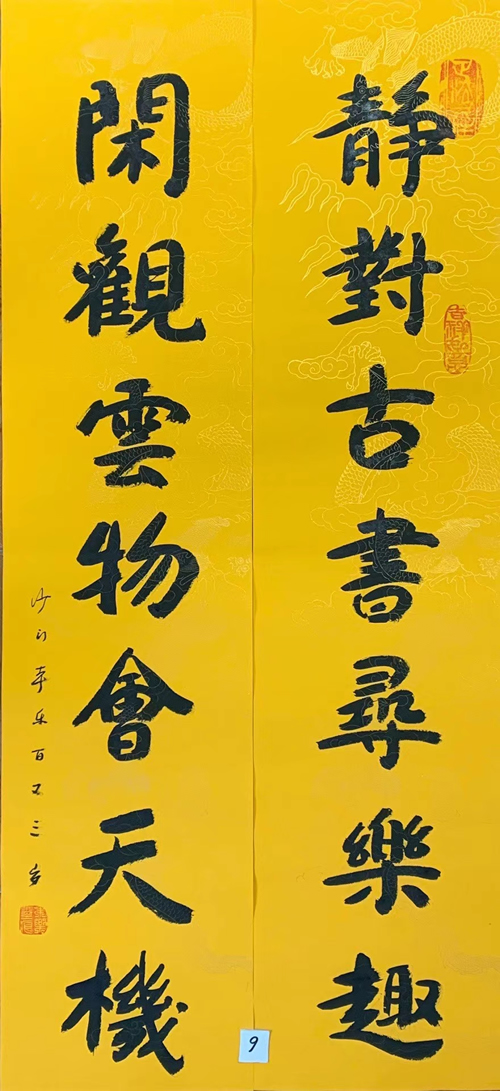 靜對古書尋樂趣
閑觀雲物會天機
百又三
9